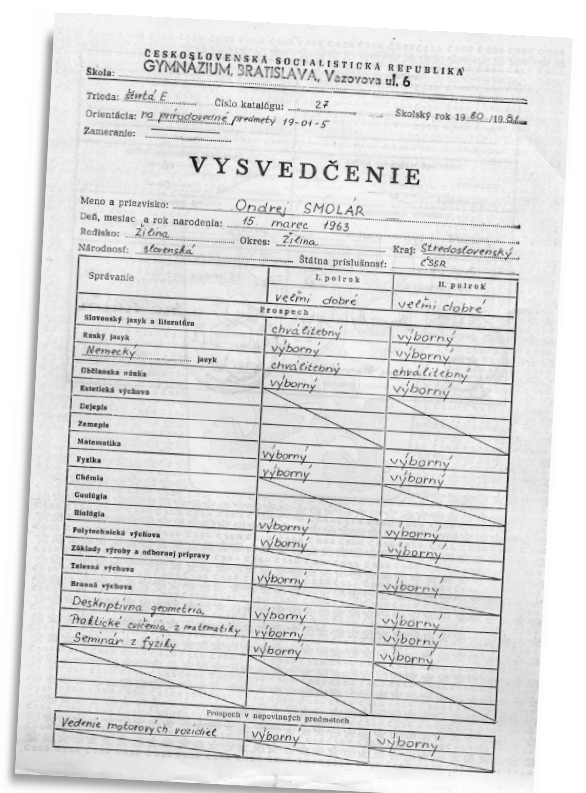 ČESKOSLOVENSKÁ SOCIALISTICKÁ REPUBLIKA
Škola: GYMNÁZIUM, BRATISLAVA, Vazovova ul. 6
Trieda: štvrtá E Číslo katalógu: 27 Školský rok 1980/1981
Orientácia: na prírodovedné predmety 19-01-5
Zameranie:
VYSVEDČENIE
Meno a priezvisko: Ondrej SMOLÁR
Deň, mesiac a rok narodenia: 15 marec 1963
Rodisko: Žilina Okres: Žilina Kraj: Stredoslovenský
Národnosť: slovenská Štátna príslušnosť: ČSSR
Správanie I. polrok II. polrok
veľmi dobré veľmi dobré
Prospech
Slovenský jazyk a literatúra chválitebný výborný
Ruský jazyk výborný výborný
Nemecký jazyk chválitebný chválitebný
Občianska náuka výborný výborný
Estetická výchova
Dejepis
Zemepis
Matematika výborný výborný
Fyzika výborný výborný
Chémia
Geológia
Biológia výborný výborný
Polytechnická výchova výborný výborný
Základy výroby a odbornej prípravy
Telesná výchova výborný výborný
Branná výchova
Deskriptívna geometria výborný výborný
Praktické cvičenia z matematiky výborný výborný
Seminár z fyziky výborný výborný
Prospech v nepovinných predmetoch
Vedenie motorových vozidiel výborný výborný